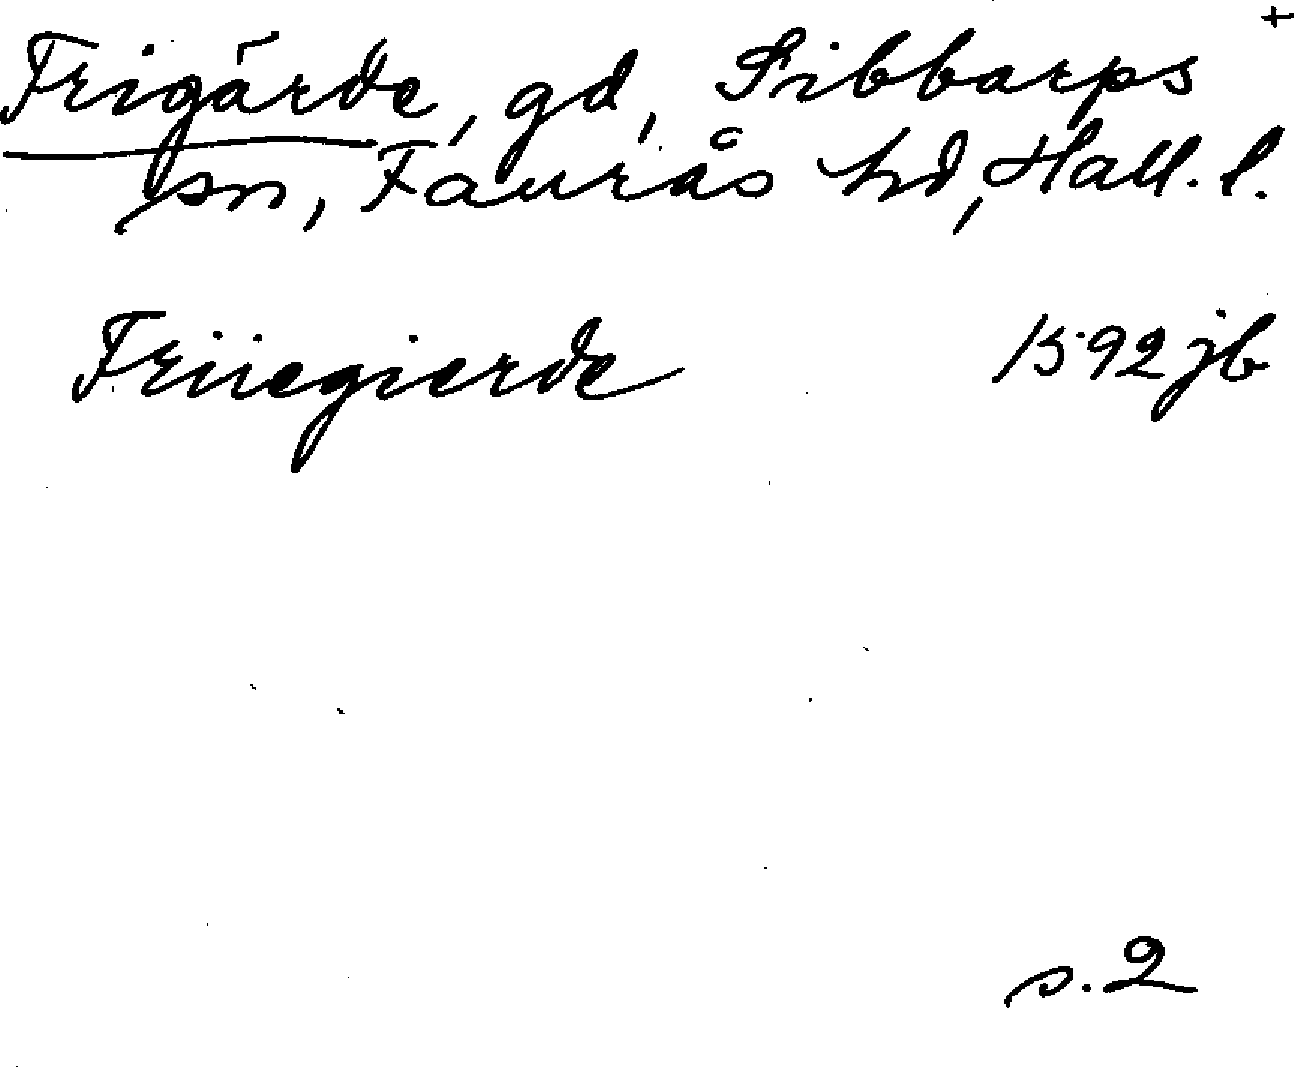 +
Frigärde, gd, Sibbarps
sn, Faurås hd, Hall. l.
Friiegierde 1592 jb
s. 2